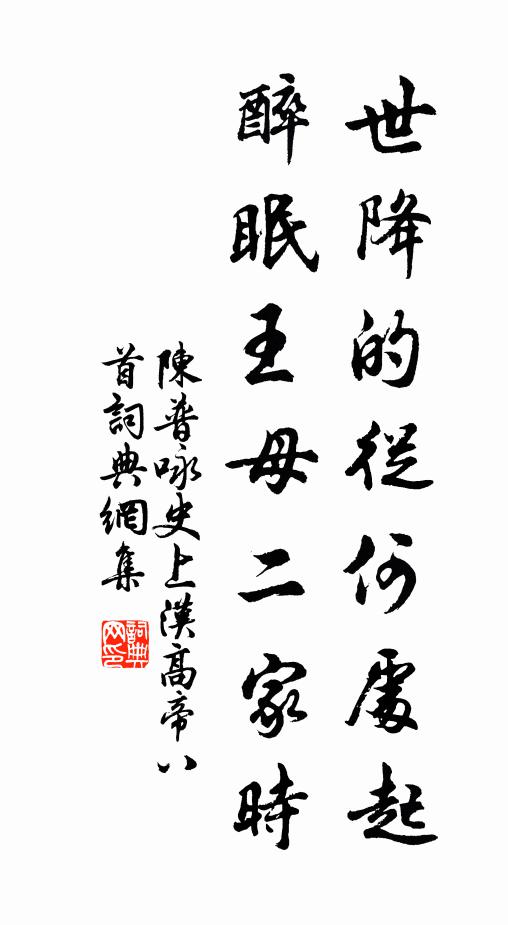 世降的從何處起
醉眠王母二家時
陳普咏史上漢高帝八
首詞典網集
詞典
网印